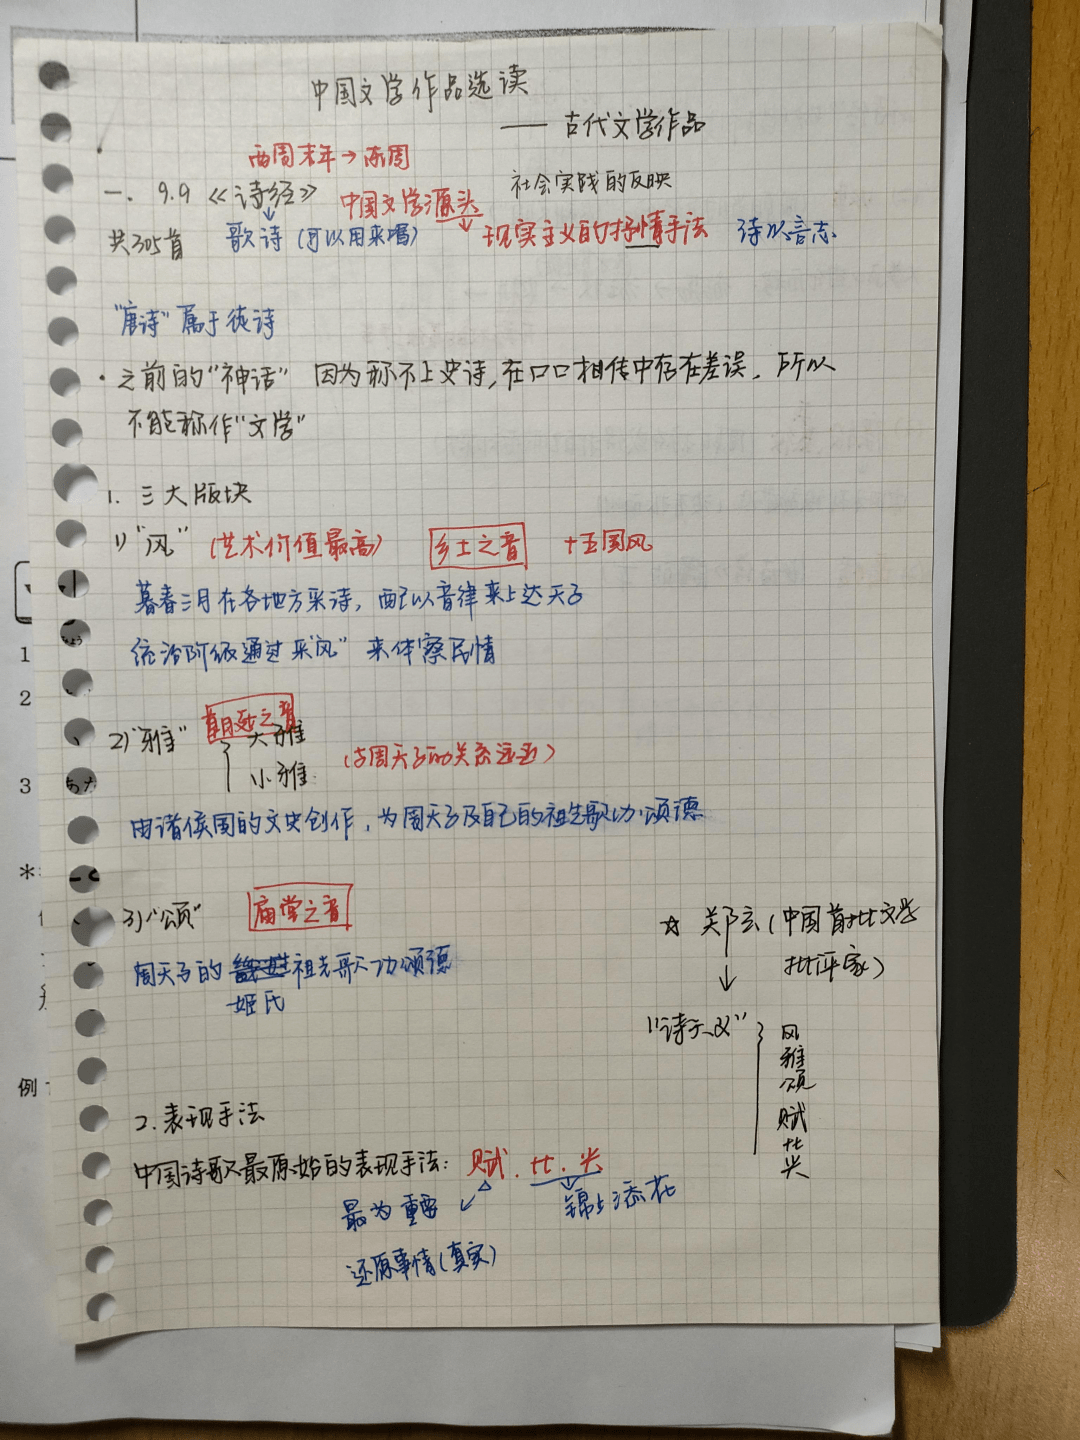 中国文学作品选读
—— 古代文学作品
西周末年→东周
一. 9.9 《诗经》 中国文学源头 社会实践的反映
共305首 歌诗(可以用来唱) 现实主义的抒情手法 诗以言志
"唐诗"属于徒诗
·之前的"神话" 因为称不上史诗,在口口相传中存在差误,所以
不能称作"文学"
1. 三大版块
1)"风" (艺术价值最高) 乡土之音 十五国风
暮春三月在各地方采诗,配以音律来上达天子
统治阶级通过采"风"来体察民情
朝廷之音
2)"雅" 大雅
小雅 (与周天子的关系远近)
由诸侯国的文史创作,为周天子及自己的祖先歌功颂德
3)"颂" 庙堂之音
☆ 郑玄(中国首批文学
批评家)
周天子的祖先歌功颂德
姬氏
"诗六义" 风
雅
颂
赋
比
兴
2.表现手法
中国诗歌最原始的表现手法: 赋.比.兴
最为重要 锦上添花
还原事情(真实)
1
2
3
*
例